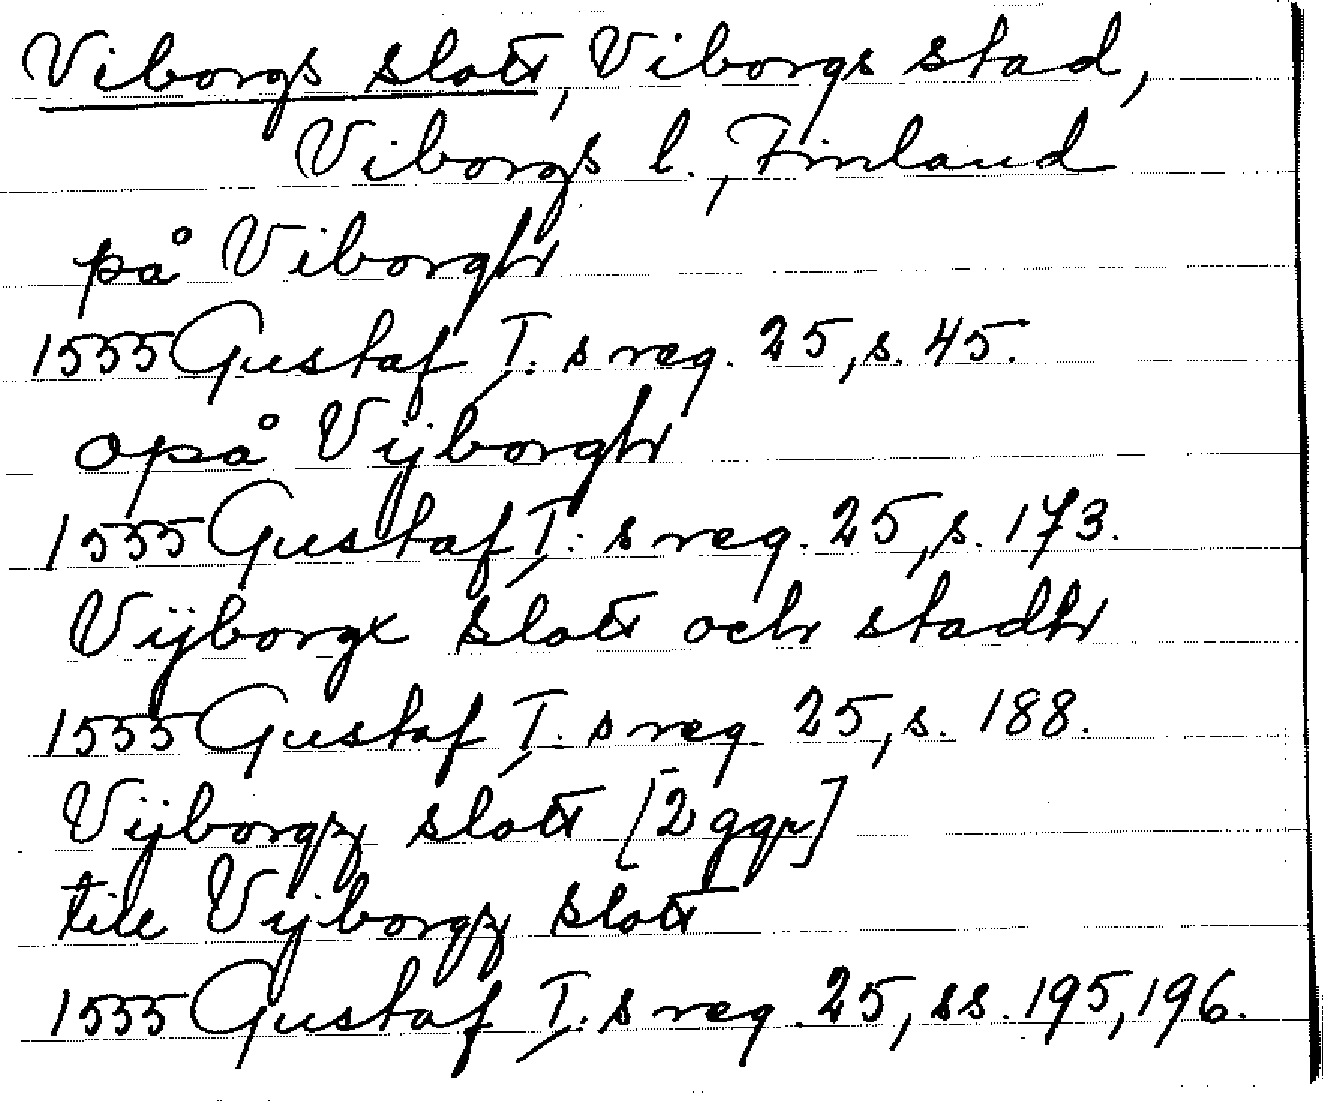 Viborgs slott, Viborgs stad,
Viborgs l., Finland
på Viborgh
1555 Gustaf I:s reg. 25, s. 45.
opå Vijborgh
1555 Gustaf I:s reg. 25, s. 173.
Vijborgx slott och stadh
1555 Gustaf I:s reg. 25, s. 188.
Vijborgz slott [2 ggr]
till Vijborgz slott
1555 Gustaf I:s reg. 25, ss. 195, 196.